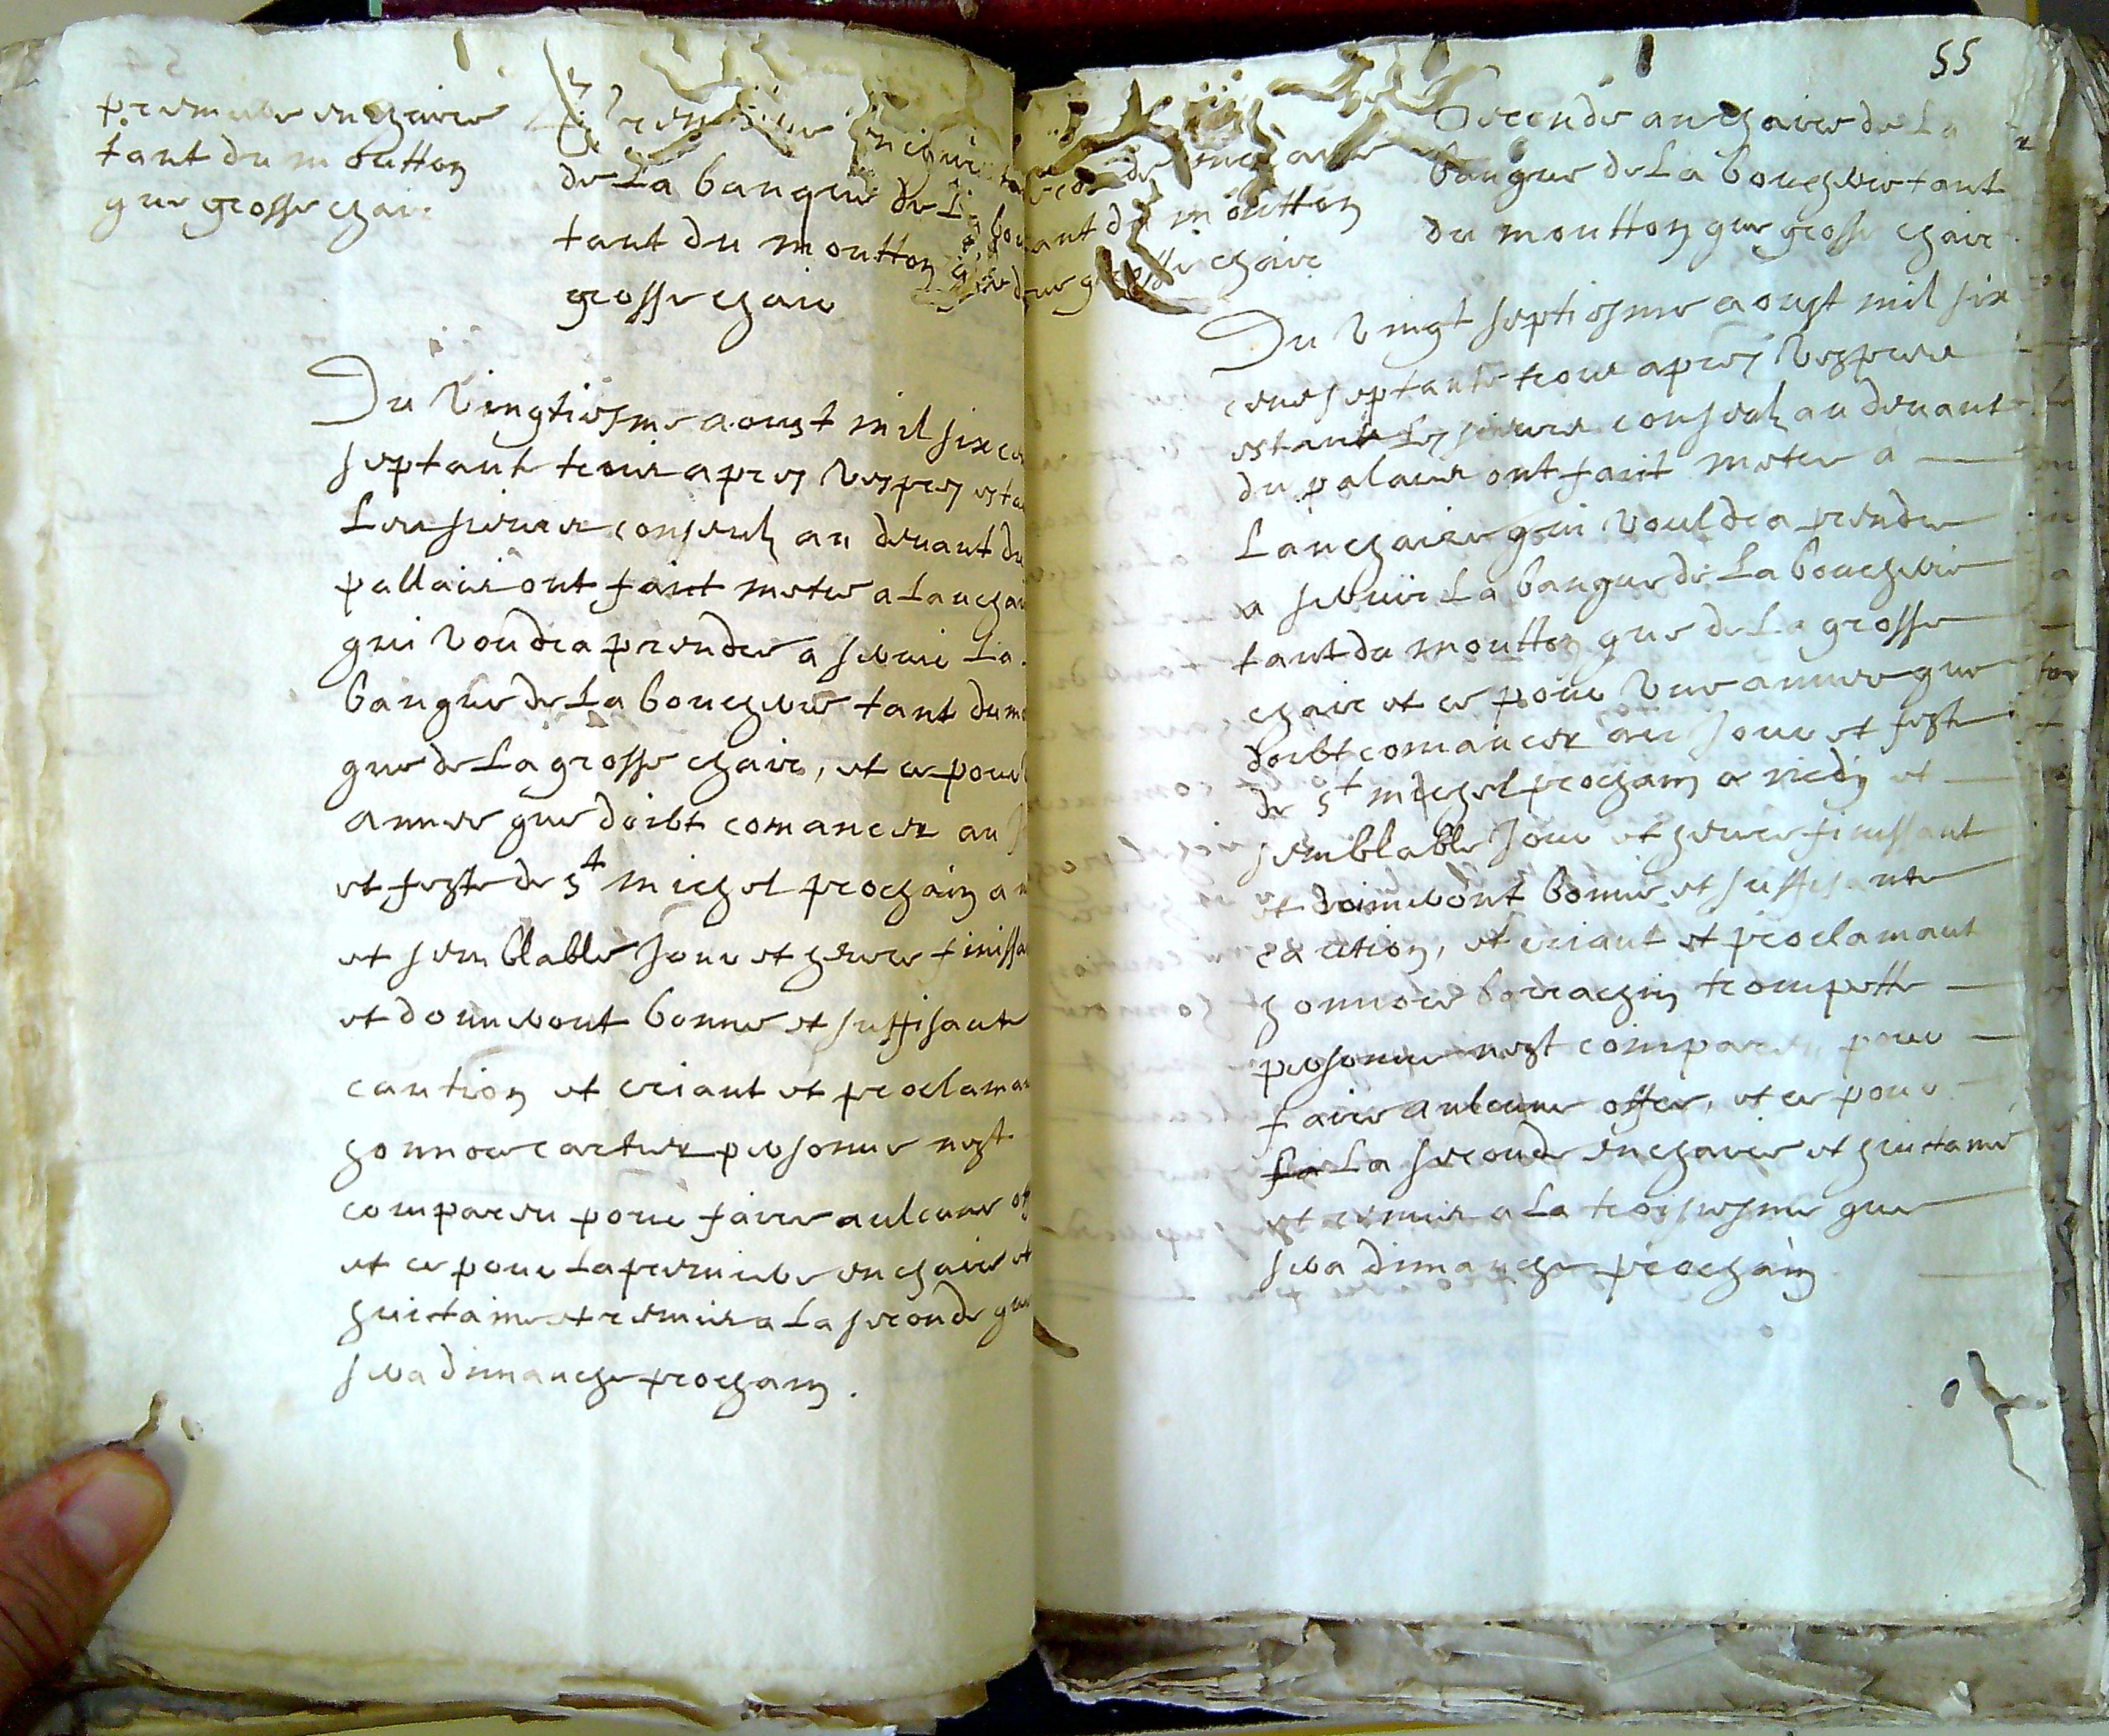 premiere enchaire
tant du moutton
que grosse chair
Premiere enchaire
de la banque de la bou
tant du moutton que de
grosse chair
Du vingtiesme aoust mil six cen
septante trois apres vespres esta
les sieurs conseulz au devant du
pallais ont faict meter a lanchai
qui voudra prender a servir la
banque de la boucherie tant du mo
que de la grosse chair, et ce pour
annee que doibt comancer au J
et feste de St michel prochain a m
et semblable Jour et heure finissa
et donneront bonne et suffisante
caution et criant et proclaman
honnore cartier personne nest
compareu pour faire aulcune of
et ce pour la premiere enchaire et
huictaine et remis a la seconde que
sera dimanche prochain.
55
seconde enchaire
tant du moutton
que grosse chair
Seconde anchaire de la
banque de la boucherie tant
du moutton que grosse chair
Du vingt septiesme aoust mil six
cens septante trois apres vespres
estant les sieurs conseulz au devant
du palais ont faict meter a
lanchaire qui vouldra prender
a servir la banque de la boucherie
tant du moutton que de la grosse
chair et ce pour une annee que
doibt comancer au Jour et feste
de St michel prochain a midy et
semblable Jour et heure finissant
et donneront bonne et suffisante
caution, et criant et proclamant
honnore barrachin trompette
personne nest compareu pour
faire aulcune offre, et ce pour
la seconde enchaire et huictaine
et remis a la troisiesme que
sera dimanche prochain